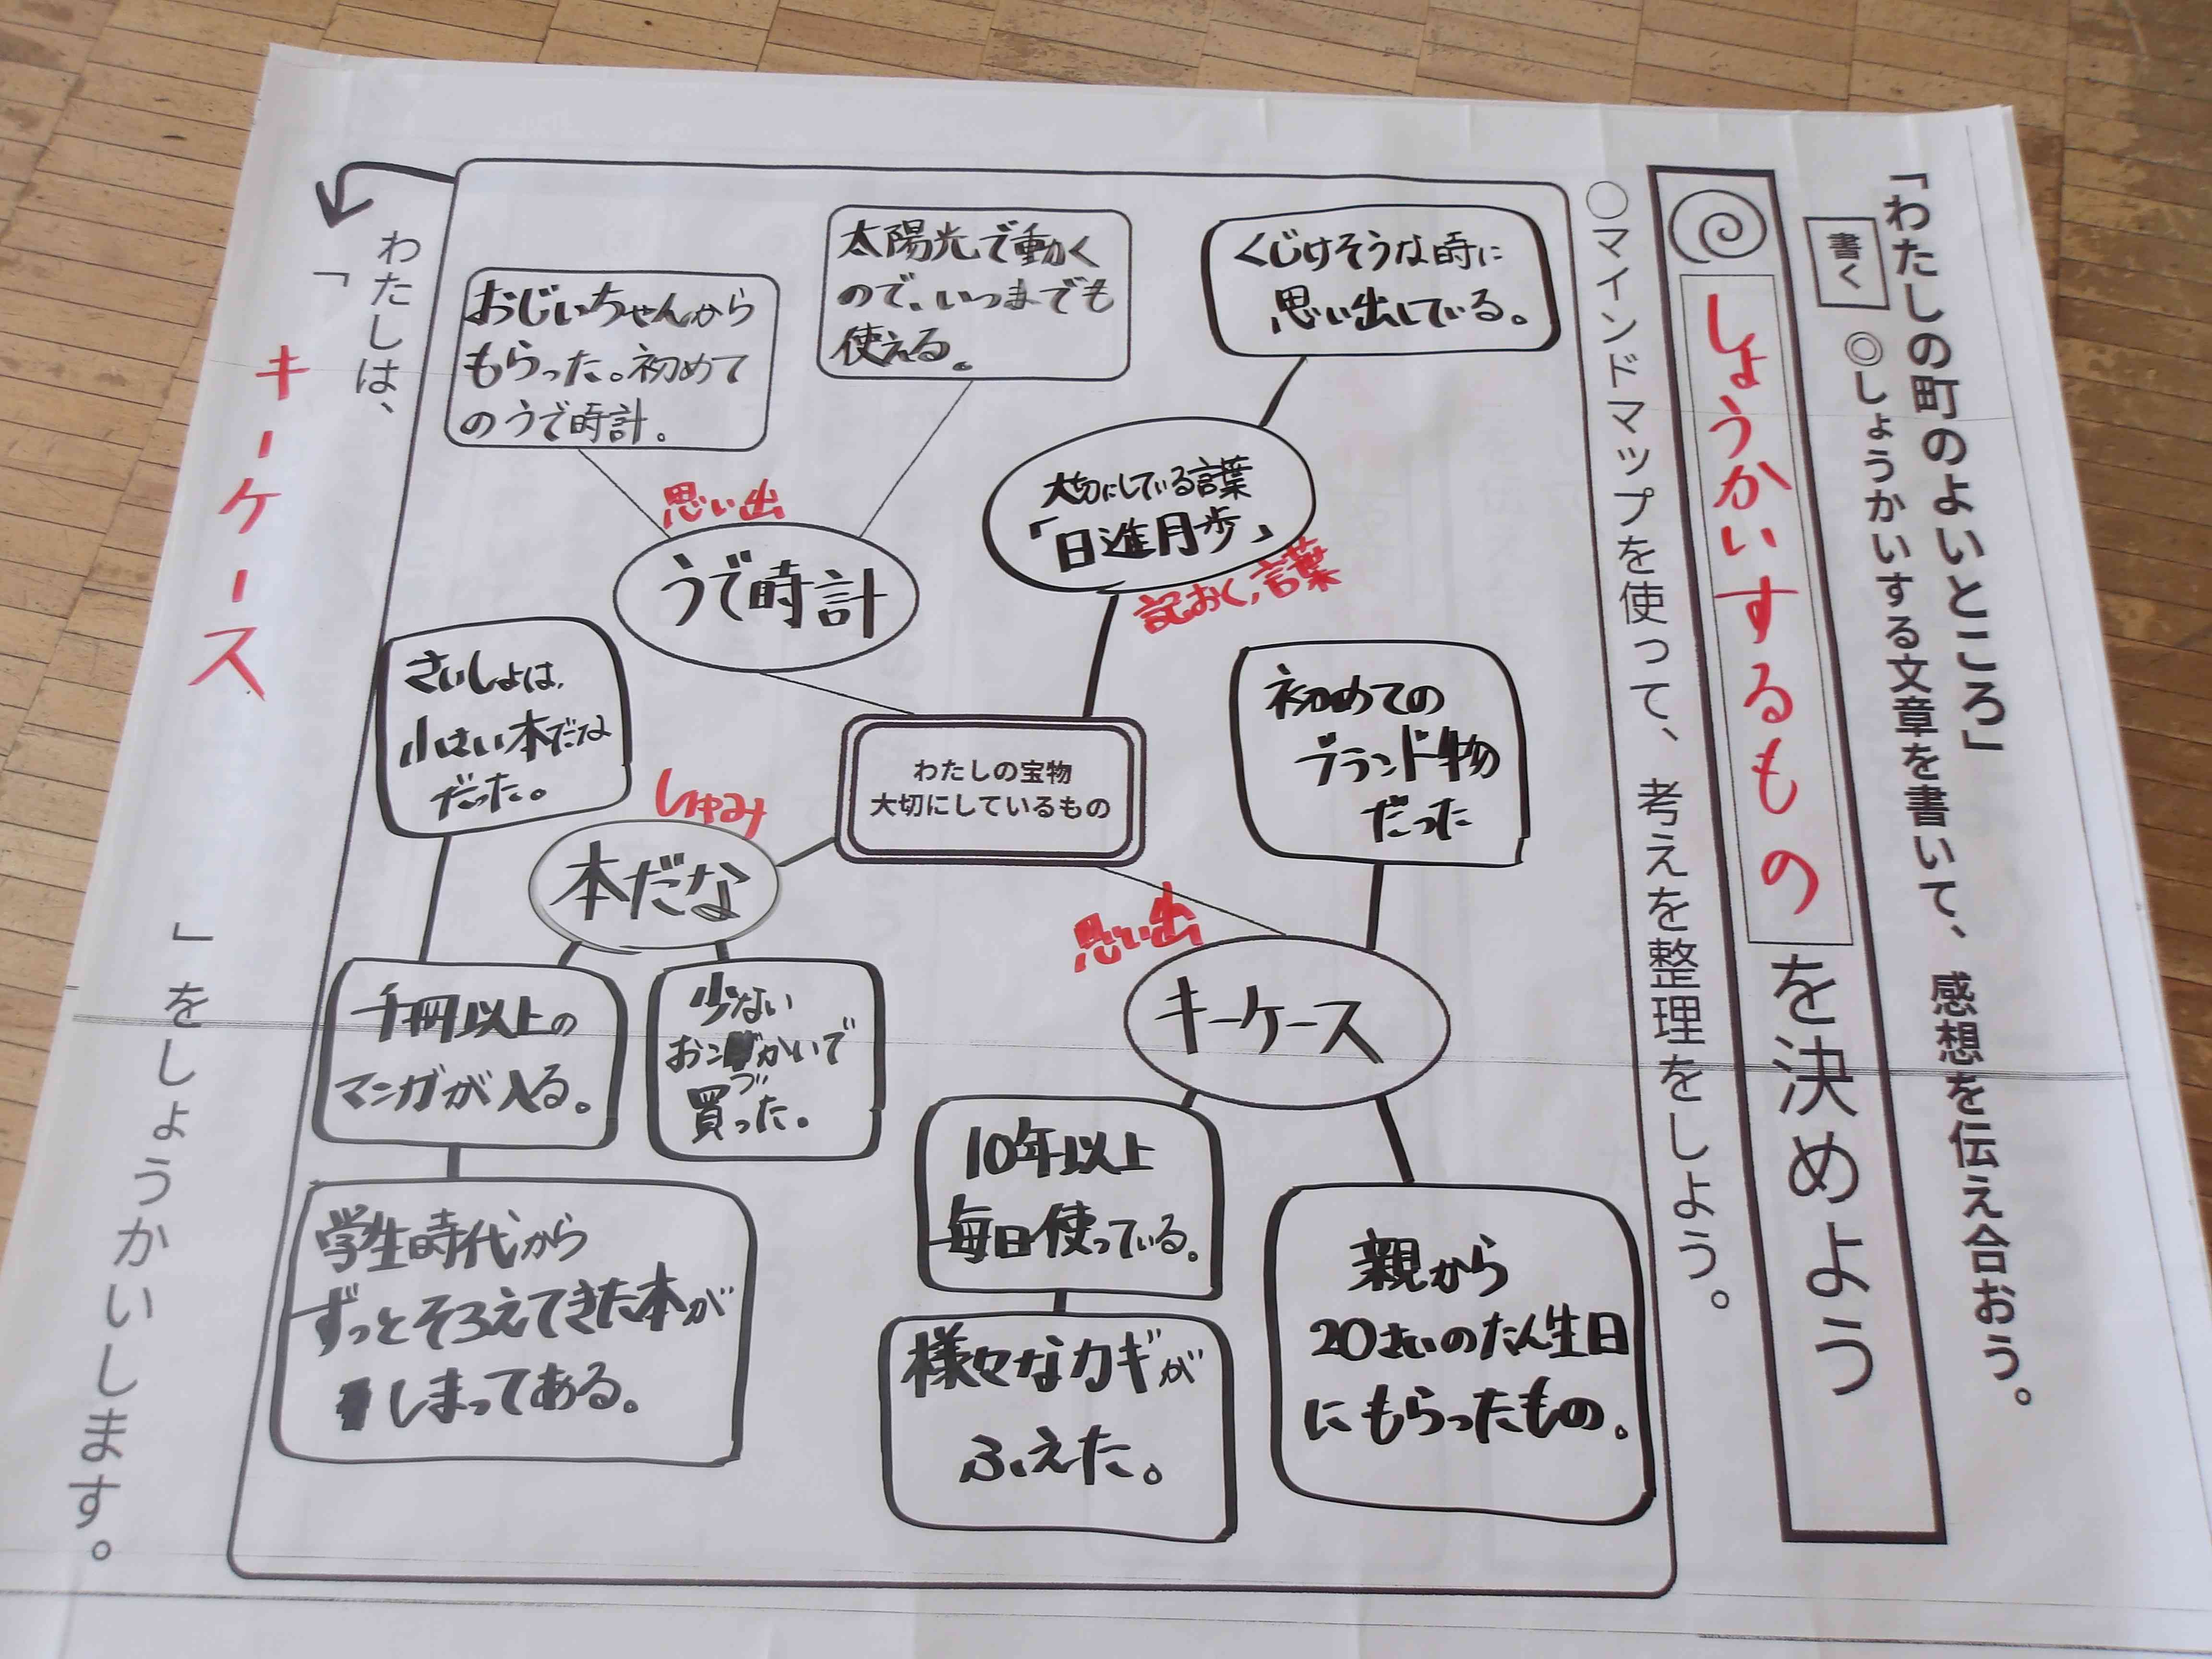 「わたしの町のよいところ」
書く
◎しょうかいする文章を書いて、感想を伝え合おう。
しょうかいするものを決めよう
○マインドマップを使って、考えを整理をしよう。
わたしの宝物
大切にしているもの
くじけそうな時に
思い出している。
大切にしている言葉
「日進月歩」
記おく,言葉
太陽光で動く
ので、いつまでも
使える。
おじいちゃんから
もらった。初めて
のうで時計。
思い出
うで時計
初めての
ブランド物
だった
思い出
キーケース
10年以上
毎日使っている。
様々なカギが
ふえた。
親から
20さいのたん生日
にもらったもの。
さいしょは、
小さい本だな
だった。
しゅみ
本だな
千冊以上の
マンガが入る。
少ない
おこづかいで
買った。
学生時代から
ずっとそろえてきた本が
しまってある。
わたしは、
「キーケース」をしょうかいします。